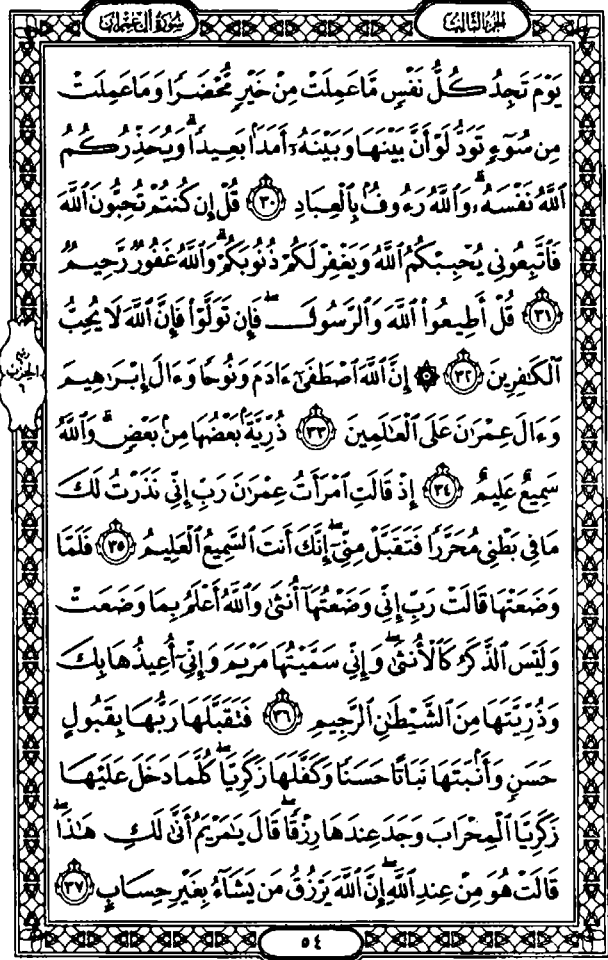 سُورَةُ آلِ عِمْرَانَ
الجُزْءُ الثَّالِثُ
يَوْمَ تَجِدُ كُلُّ نَفْسٍ مَّا عَمِلَتْ مِنْ خَيْرٍ مُّحْضَرًا وَمَا عَمِلَتْ
مِن سُوٓءٍ تَوَدُّ لَوْ أَنَّ بَيْنَهَا وَبَيْنَهُۥٓ أَمَدَۢا بَعِيدًاۗ وَيُحَذِّرُكُمُ
ٱللَّهُ نَفْسَهُۥۗ وَٱللَّهُ رَءُوفُۢ بِٱلْعِبَادِ ٣٠ قُلْ إِن كُنتُمْ تُحِبُّونَ ٱللَّهَ
فَٱتَّبِعُونِى يُحْبِبْكُمُ ٱللَّهُ وَيَغْفِرْ لَكُمْ ذُنُوبَكُمْۗ وَٱللَّهُ غَفُورٌ رَّحِيمٌ
٣١ قُلْ أَطِيعُوا۟ ٱللَّهَ وَٱلرَّسُولَۖ فَإِن تَوَلَّوْا۟ فَإِنَّ ٱللَّهَ لَا يُحِبُّ
ٱلْكَٰفِرِينَ ٣٢ ۞ إِنَّ ٱللَّهَ ٱصْطَفَىٰٓ ءَادَمَ وَنُوحًا وَءَالَ إِبْرَٰهِيمَ
وَءَالَ عِمْرَٰنَ عَلَى ٱلْعَٰلَمِينَ ٣٣ ذُرِّيَّةَۢ بَعْضُهَا مِنۢ بَعْضٍۗ وَٱللَّهُ
سَمِيعٌ عَلِيمٌ ٣٤ إِذْ قَالَتِ ٱمْرَأَتُ عِمْرَٰنَ رَبِّ إِنِّى نَذَرْتُ لَكَ
مَا فِى بَطْنِى مُحَرَّرًا فَتَقَبَّلْ مِنِّىٓۖ إِنَّكَ أَنتَ ٱلسَّمِيعُ ٱلْعَلِيمُ ٣٥ فَلَمَّا
وَضَعَتْهَا قَالَتْ رَبِّ إِنِّى وَضَعْتُهَآ أُنثَىٰ وَٱللَّهُ أَعْلَمُ بِمَا وَضَعَتْ
وَلَيْسَ ٱلذَّكَرُ كَٱلْأُنثَىٰۖ وَإِنِّى سَمَّيْتُهَا مَرْيَمَ وَإِنِّىٓ أُعِيذُهَا بِكَ
وَذُرِّيَّتَهَا مِنَ ٱلشَّيْطَٰنِ ٱلرَّجِيمِ ٣٦ فَتَقَبَّلَهَا رَبُّهَا بِقَبُولٍ
حَسَنٍ وَأَنۢبَتَهَا نَبَاتًا حَسَنًا وَكَفَّلَهَا زَكَرِيَّاۖ كُلَّمَا دَخَلَ عَلَيْهَا
زَكَرِيَّا ٱلْمِحْرَابَ وَجَدَ عِندَهَا رِزْقًاۖ قَالَ يَٰمَرْيَمُ أَنَّىٰ لَكِ هَٰذَاۖ
قَالَتْ هُوَ مِنْ عِندِ ٱللَّهِۖ إِنَّ ٱللَّهَ يَرْزُقُ مَن يَشَآءُ بِغَيْرِ حِسَابٍ ٣٧
ربع
الحزب
٦
٥٤